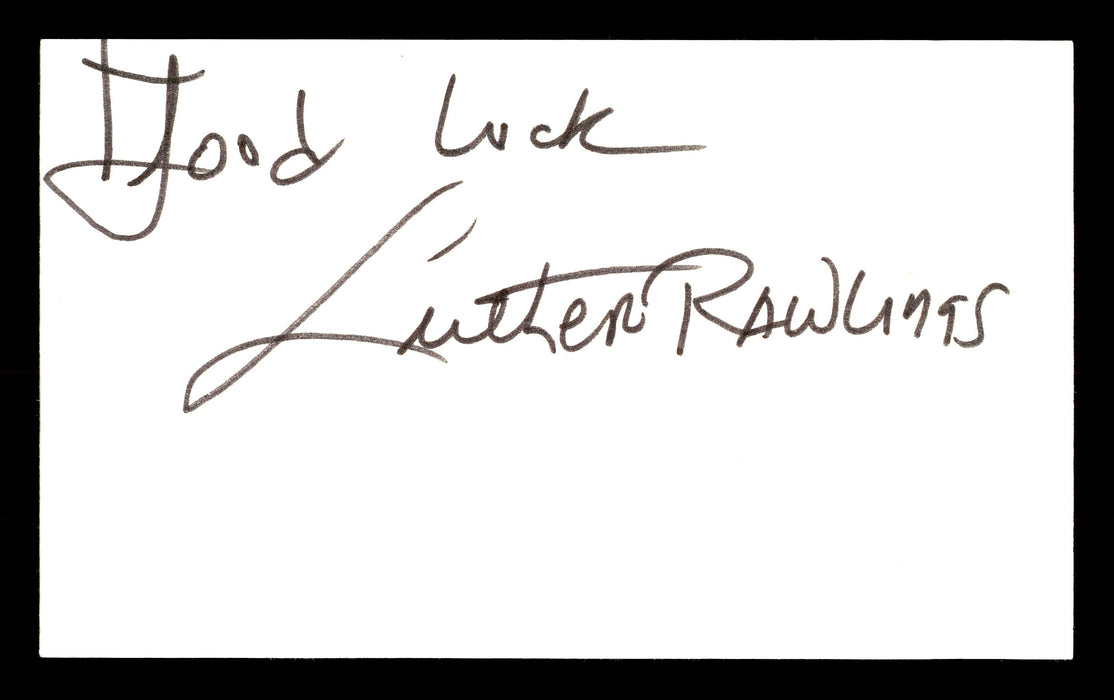 Good Luck
Luther Rawlings